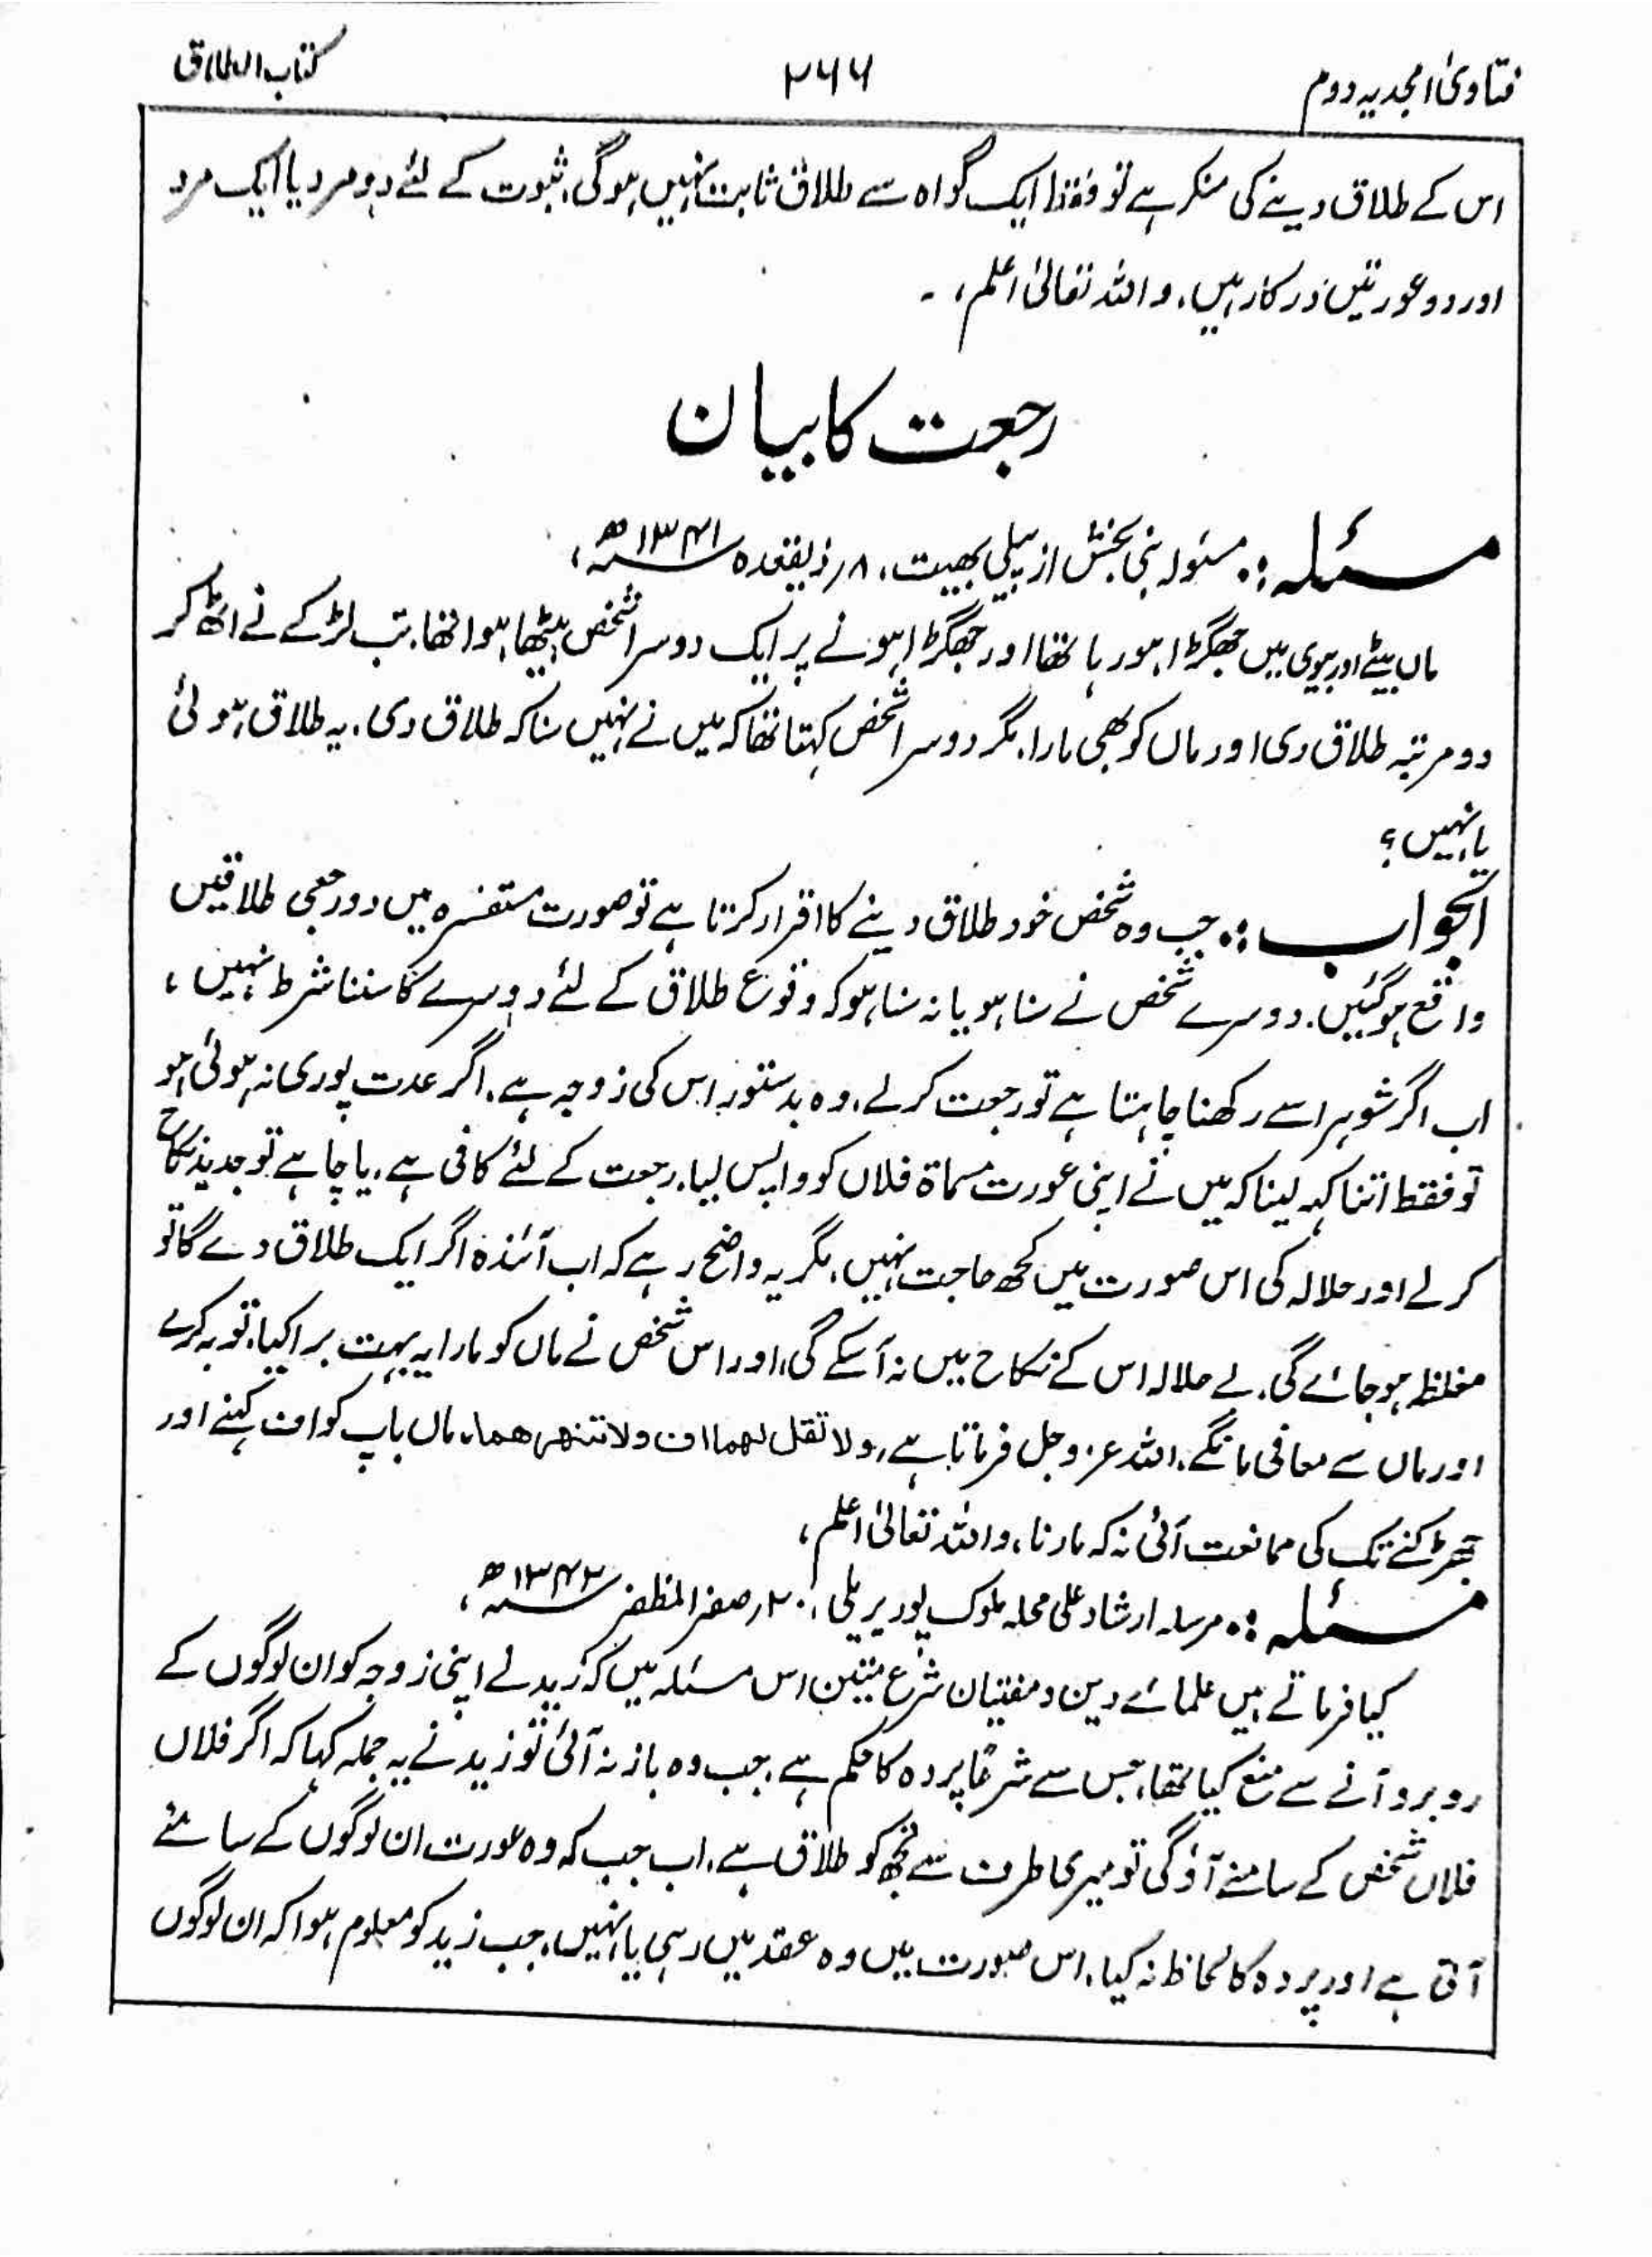 فتاویٰ امجدیہ دوم
۲۶۶
کتاب الطلاق
اس کے طلاق دینے کی منکر ہے تو فقط ایک گواہ سے طلاق ثابت نہیں ہوگی، ثبوت کے لئے دو مرد یا ایک مرد
اور دو عورتیں درکار ہیں، واللہ تعالیٰ اعلم، ۔
رجعت کا بیان
مسئلہ :۔ مسئولہ نبی بخش از پیلی بھیت، ۸؍ ذیقعدہ ۱۳۴۱ھ،
ماں بیٹے اور بیوی میں جھگڑا ہو رہا تھا اور جھگڑا ہونے پر ایک دوسرا شخص بیٹھا ہوا تھا، تب لڑکے نے اٹھ کر
دو مرتبہ طلاق دی اور ماں کو بھی مارا، مگر دوسرا شخص کہتا تھا کہ میں نے نہیں سنا کہ طلاق دی، یہ طلاق ہوئی
یا نہیں؟
الجواب :۔ جب وہ شخص خود طلاق دینے کا اقرار کرتا ہے تو صورت مستفسرہ میں دو رجعی طلاقیں
واقع ہوگئیں، دوسرے شخص نے سنا ہو یا نہ سنا ہو کہ وقوع طلاق کے لئے دوسرے کا سننا شرط نہیں،
اب اگر شوہر اسے رکھنا چاہتا ہے تو رجعت کرلے، وہ بدستور اس کی زوجہ ہے، اگر عدت پوری نہ ہوئی ہو
تو فقط اتنا کہہ لینا کہ میں نے اپنی عورت مسماۃ فلاں کو واپس لیا، رجعت کے لئے کافی ہے، یا چاہے تو جدید نکاح
کرلے اور حلالہ کی اس صورت میں کچھ حاجت نہیں، مگر یہ واضح رہے کہ اب آئندہ اگر ایک طلاق دے گا تو
مغلظہ ہو جائے گی، بے حلالہ اس کے نکاح میں نہ آسکے گی، اور اس شخص نے ماں کو مارا یہ بہت برا کیا، توبہ کرے
اور ماں سے معافی مانگے، اللہ عزوجل فرماتا ہے، ولا تقل لهما اف ولا تنهرهما، ماں باپ کو اف کہنے اور
جھڑکنے تک کی ممانعت آئی نہ کہ مارنا، واللہ تعالیٰ اعلم،
مسئلہ :۔ مرسلہ ارشاد علی محلہ ملوک پور بریلی، ۲۰؍ صفر المظفر ۱۳۴۲ھ،
کیا فرماتے ہیں علمائے دین و مفتیان شرع متین اس مسئلہ میں کہ زید نے اپنی زوجہ کو ان لوگوں کے
روبرو آنے سے منع کیا تھا، جس سے شرعًا پردہ کا حکم ہے، جب وہ باز نہ آئی تو زید نے یہ جملہ کہا کہ اگر فلاں
فلاں شخص کے سامنے آؤگی تو میری طرف سے تجھ کو طلاق ہے، اب جب کہ وہ عورت ان لوگوں کے سامنے
آتی ہے اور پردہ کا لحاظ نہ کیا، اس صورت میں وہ عقد میں رہی یا نہیں، جب زید کو معلوم ہوا کہ ان لوگوں